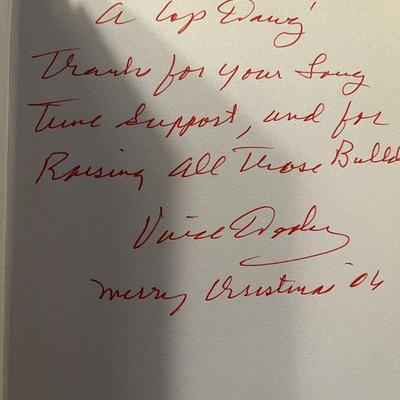 A Top Dawg!
Thanks for your Long
Time Support, and for
Raising All Those Bulld
Vince Dooley
Merry Christmas '04